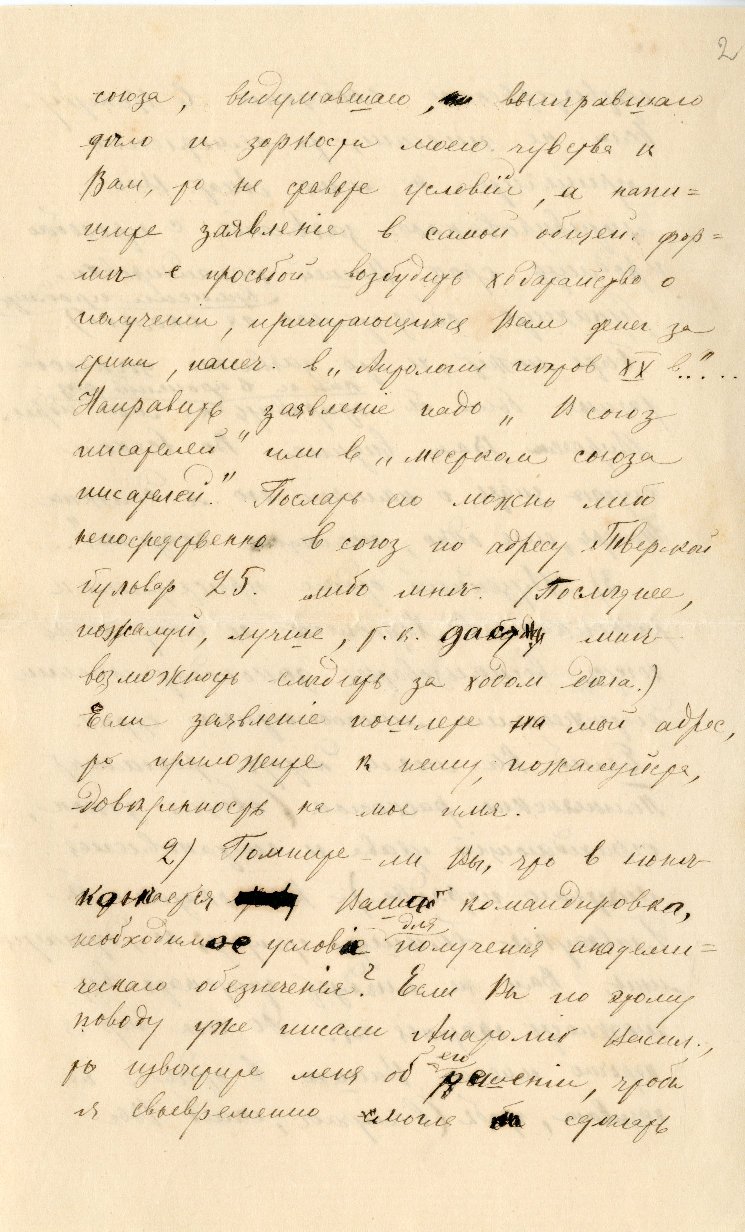 2
союза, выдумавшаго, выигравшаго
дѣло и зоркости моего чувства к
Вам, то не ставьте условій, а напи=
шите заявленіе в самой общей фор=
мѣ с просьбой возбудить ходатайство о
полученіи, причитающихся Вам денег за
стихи, напеч. в „Антологии поэтов XX в."...
Направить заявленіе надо „В союз
писателей" или в „местком союза
писателей". Послать его можно либо
непосредственно в союз по адресу Тверской
бульвар 25. либо мнѣ. (Послѣднее,
пожалуй, лучше, т.к. даст мнѣ
возможность слѣдить за ходом дѣла.)
Если заявленіе пошлете на мой адрес,
то приложите к нему, пожалуйста,
довѣренность на мое имя.
2) Помните-ли Вы, что в іюнѣ
кончается Ваша командировка,
необходимое условіе для полученія академи=
ческаго обезпеченія? Если Вы по этому
поводу уже писали Анатолію Васил.,
то известите меня об его рѣшеніи, чтобы
я своевременно смогла сдѣлать